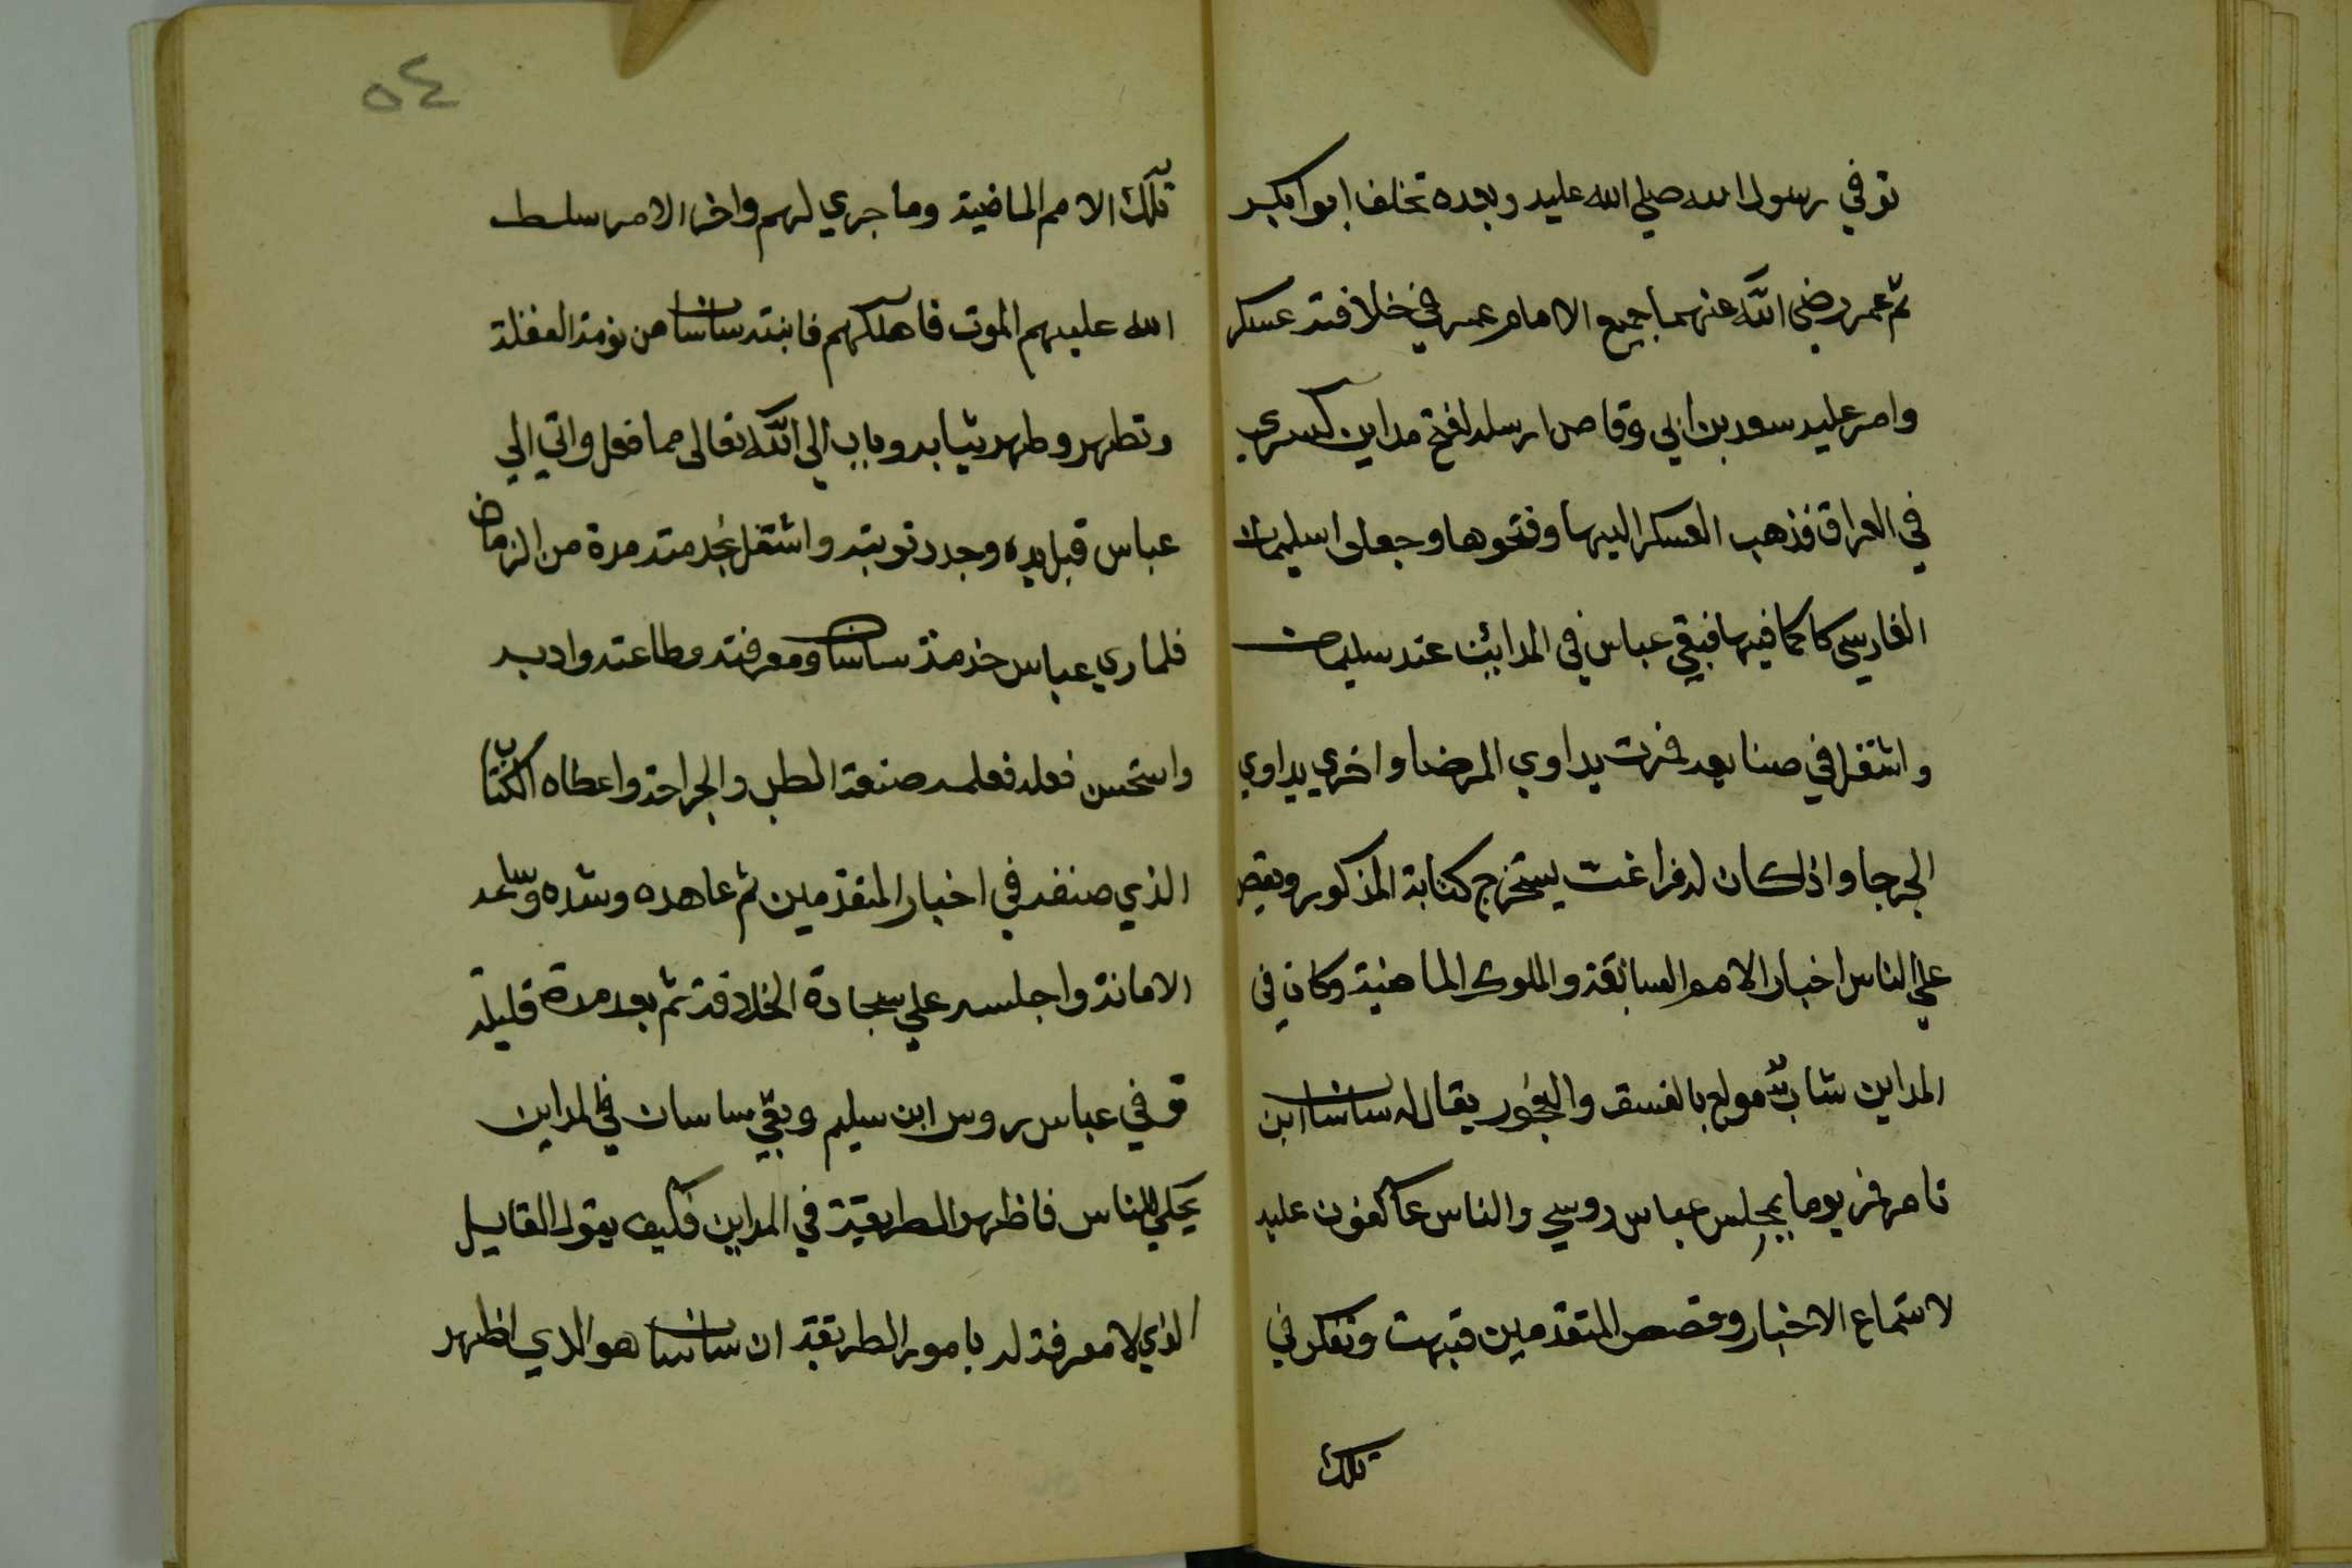 توفي رسول الله صلي الله عليه وبعده تخلف ابوابكر
ثم عمر رضي الله عنهما جميع الامام عمر في خلافته عسكر
وامر عليه سعد بن ابي وقاص ارسله لفتح مداين كسري
في العراق فذهب العسكر اليها وفتحوها وجعلوا سليمان
الفارسي حاكما فيها فبقي عباس في المدائن عند سليمان
واشتغل في صنايعه فمرت يداوي المرضا واخري يداوي
الجرحا واذا كان له فراغت يستخرج كتابة المذكور ويقص
علي الناس اخبار الامم السابقة والملوك الماضية وكان في
المداين شاب مولع بالفسق والفجور يقال له ساسان ابن
نامر فمر يوما بمجلس عباس روسي والناس عاكفون عليه
لاستماع الاخبار وقصص المتقدمين فبهت وتفكر في
تلك
٥٤
تلك الامم الماضية وما جري لهم واخر الامر سلط
الله عليهم الموت فاهلكهم فانتبه ساسان من نومة الغفلة
وتطهر وطهر ثيابه وتاب الي الله تعالى مما فعل واتي الي
عباس قبل يده وجدد توبته واشتغل بخدمته مدة من الزمان
فلما راي عباس خدمة ساسان ومعرفته وطاعته وادبه
واستحسن فعله فعلمه صنعة الطب والجراحة واعطاه الكتاب
الذي صنفه في اخبار المتقدمين ثم عاهده وشده وسلمه
الامانة واجلسه علي سجادة الخلافة ثم بعد مدة قليلة
توفي عباس روس ابن سليم وبقي ساسان في المداين
يحكي للناس فاظهر الطريقة في المداين فكيف يقول القايل
الذي لا معرفة له بامور الطريقة ان ساسان هو الذي اظهر